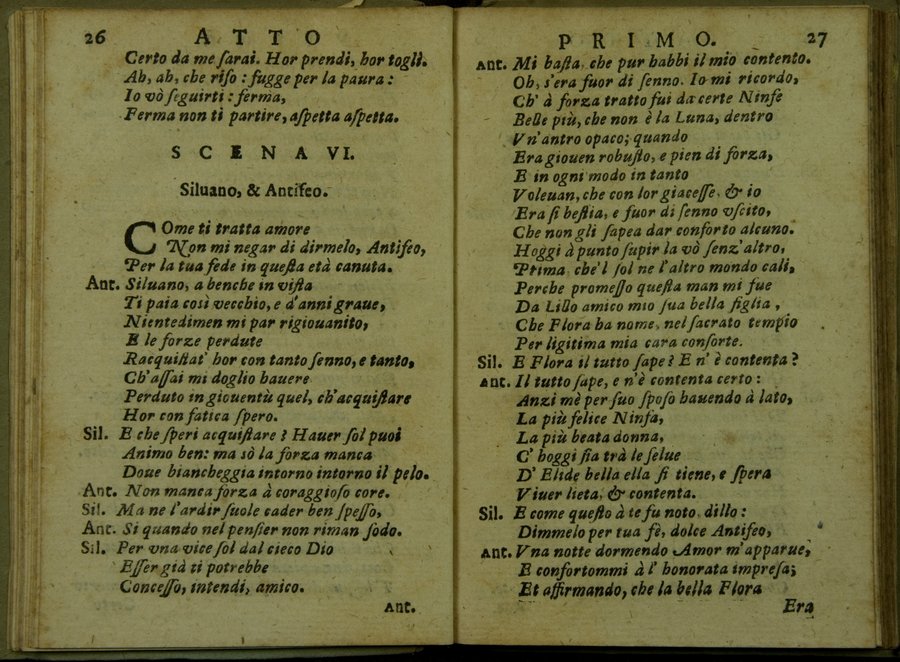 26 ATTO
Certo da me ſarai. Hor prendi, hor togli.
Ah, ah, che riſo : fugge per la paura :
Io vò ſeguirti : ferma,
Ferma non ti partire, aſpetta aſpetta.
SCENA VI.
Siluano, & Antifeo.
COme ti tratta amore
Non mi negar di dirmelo, Antifeo,
Per la tua fede in queſta età canuta.
Ant. Siluano, a benche in viſta
Ti paia così vecchio, e d'anni graue,
Nientedimen mi par rigiouanito,
E le forze perdute
Racquiſtat' hor con tanto ſenno, e tanto,
Ch'aſſai mi doglio hauere
Perduto in giouentù quel, ch'acquiſtare
Hor con fatica ſpero.
Sil. E che ſperi acquiſtare ? Hauer ſol puoi
Animo ben: ma sò la forza manca
Doue biancheggia intorno intorno il pelo.
Ant. Non manca forza à coraggioſo core.
Sil. Ma ne l'ardir ſuole cader ben ſpeſſo,
Ant. Si quando nel penſier non riman ſodo.
Sil. Per vna vice ſol dal cieco Dio
Eſſer già ti potrebbe
Conceſſo, intendi, amico.
Ant.
PRIMO. 27
Ant. Mi baſta, che pur habbi il mio contento.
Oh, s'era fuor di ſenno. Io mi ricordo,
Ch' à forza tratto fui da certe Ninfe
Belle più, che non è la Luna, dentro
Vn'antro opaco; quando
Era giouen robuſto, e pien di forza,
E in ogni modo in tanto
Voleuan, che con lor giaceſſe, & io
Era ſi beſtia, e fuor di ſenno vſcito,
Che non gli ſapea dar conforto alcuno.
Hoggi à punto ſupir la vò ſenz'altro,
Prima che'l ſol ne l'altro mondo cali,
Perche promeſſo queſta man mi fue
Da Lillo amico mio ſua bella figlia,
Che Flora ha nome, nel ſacrato tempio
Per ligitima mia cara conſorte.
Sil. E Flora il tutto ſape ? E n' è contenta ?
Ant. Il tutto ſape, e n'è contenta certo :
Anzi mè per ſuo ſpoſo hauendo à lato,
La più felice Ninfa,
La più beata donna,
C' hoggi ſia trà le ſelue
D' Elide bella ella ſi tiene, e ſpera
Viuer lieta, & contenta.
Sil. E come queſto à te fu noto dillo :
Dimmelo per tua fè, dolce Antifeo,
Ant. Vna notte dormendo Amor m'apparue,
E confortommi à l' honorata impreſa;
Et affirmando, che la bella Flora
Era